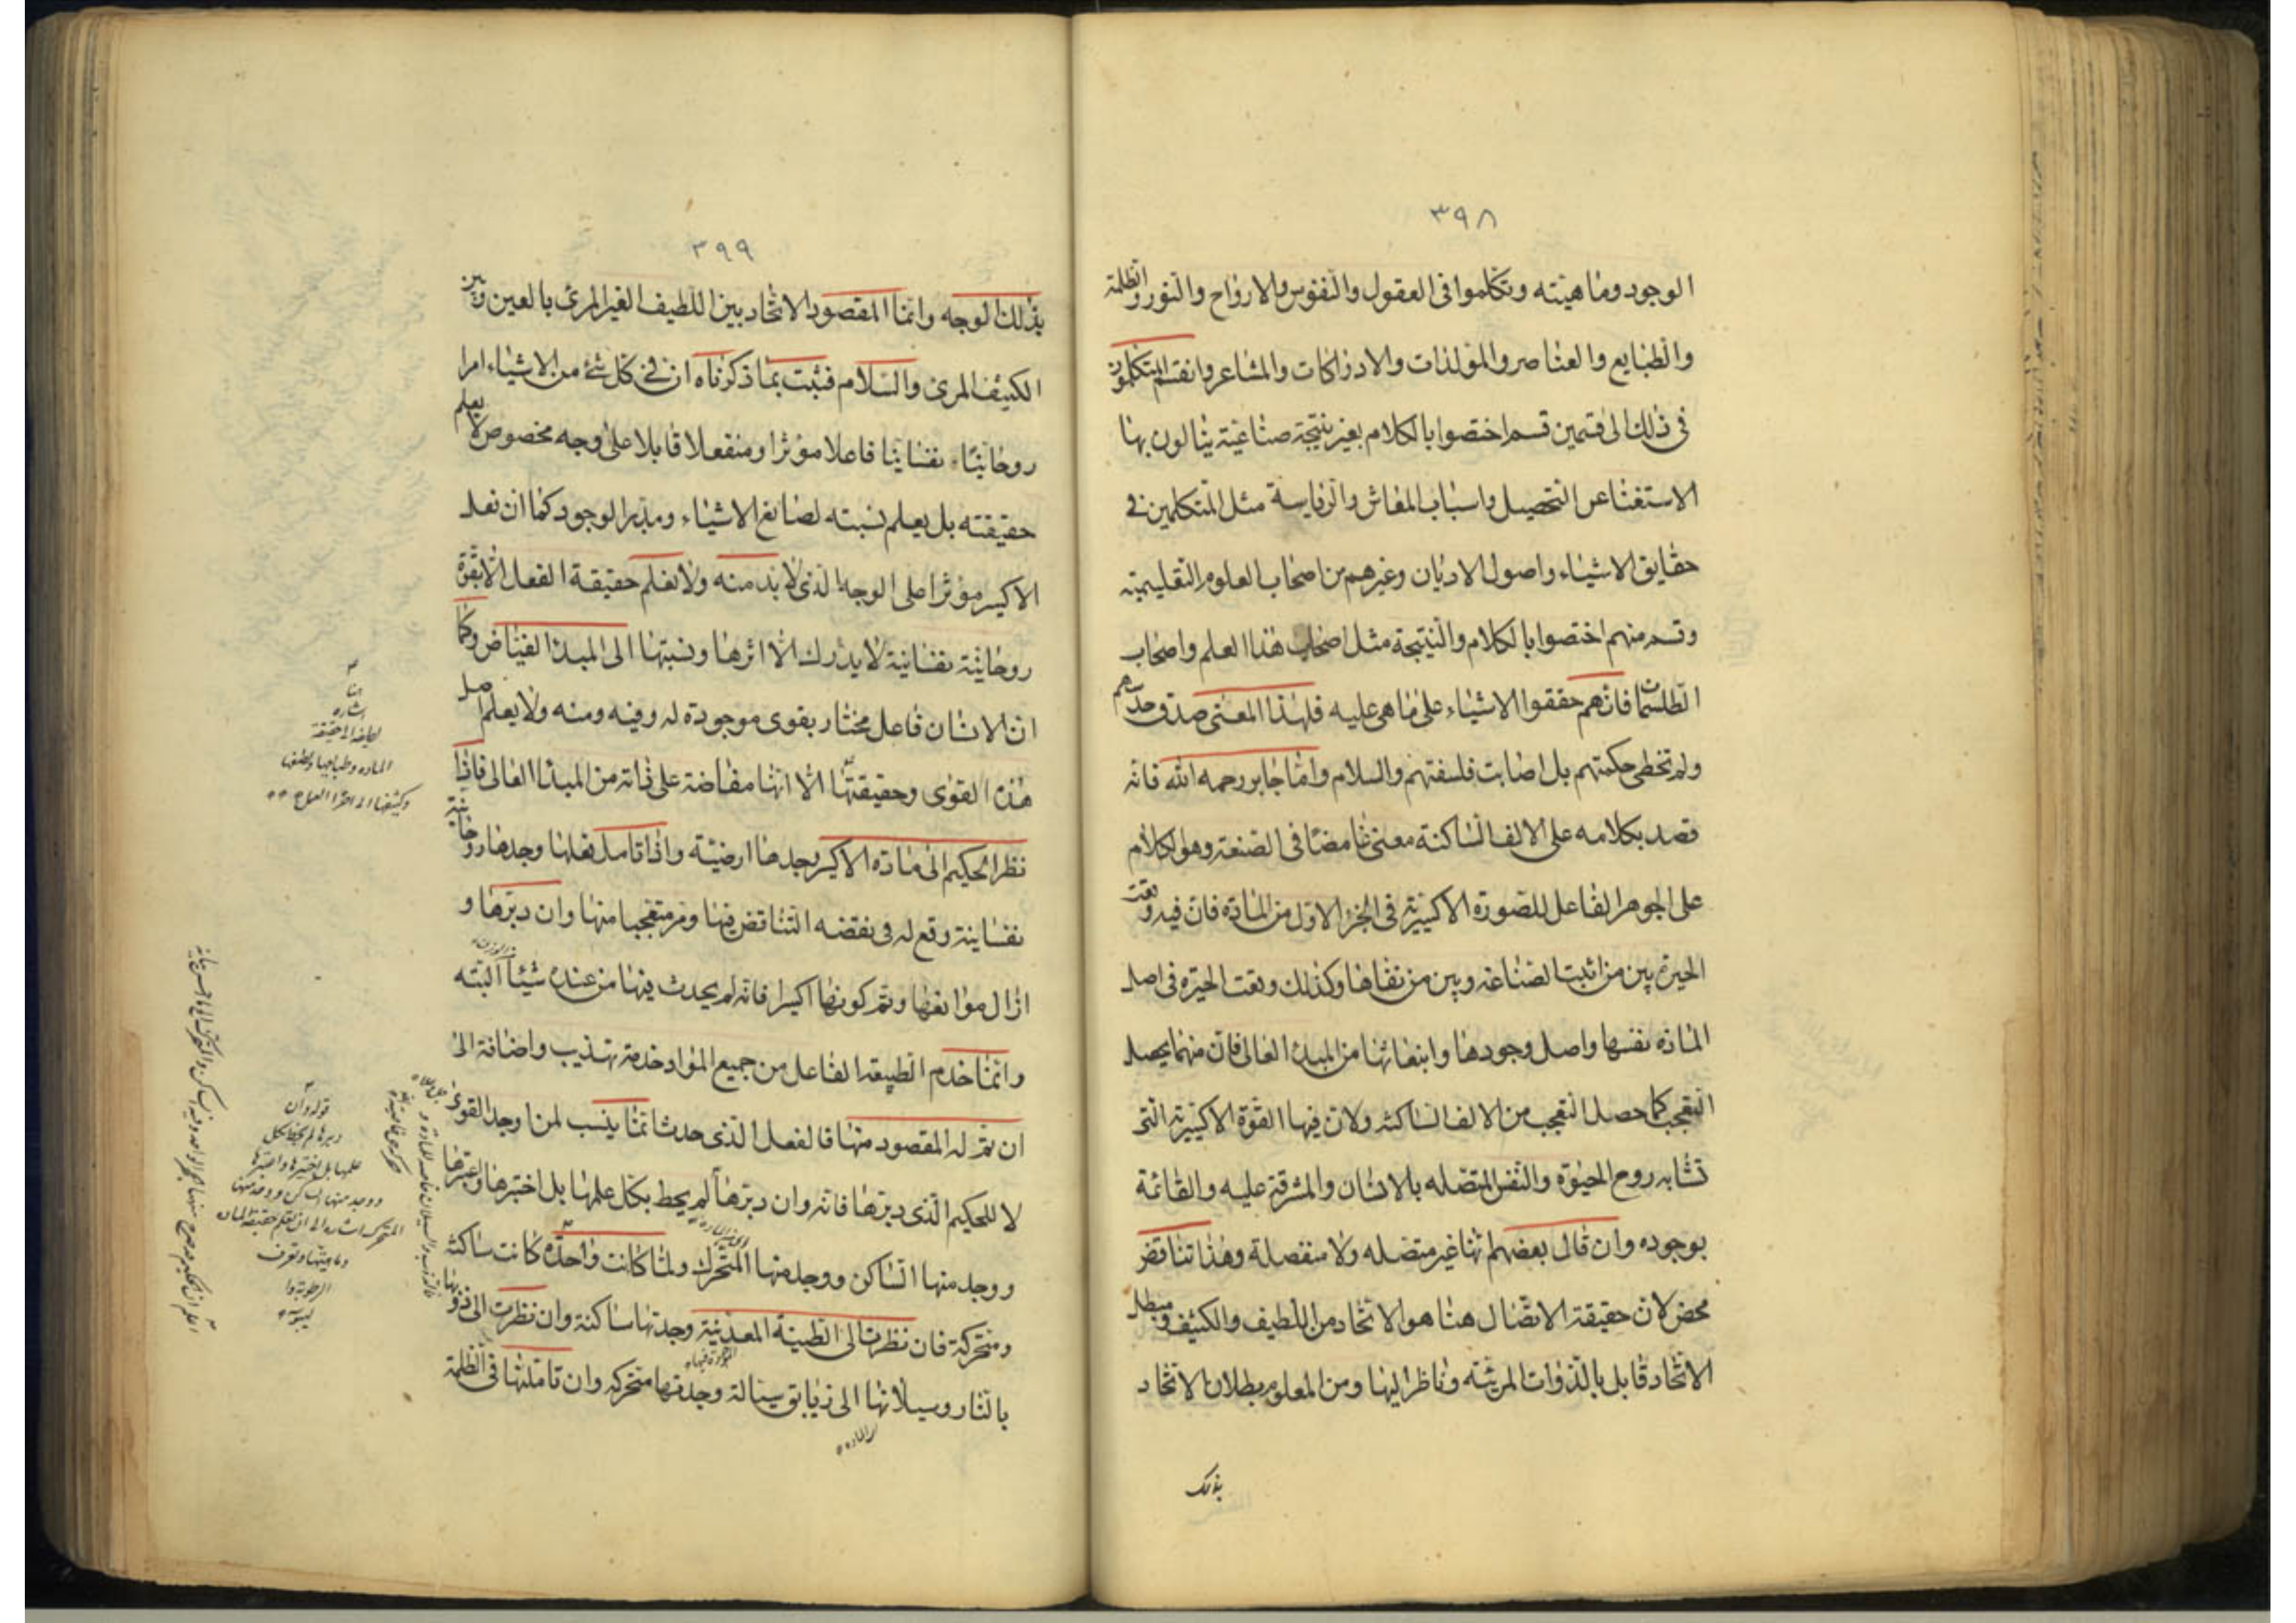 ٣٩٨
الوجود وماهيته وتكلموا فى العقول والنفوس والارواح والنور والظلمة
والطبايع والعناصر والمولدات والادراكات والمشاعر وانقسم المتكلمون
فى ذلك الى قسمين قسم اختصوا بالكلام بغير نتيجة صناعية ينالون بها
الاستغنا عن التحصيل واسباب المعاش والرياسة مثل المتكلمين فى
حقايق الاشياء واصول الاديان وغيرهم من اصحاب العلوم التعليمية
وقسم منهم اختصوا بالكلام والنتيجة مثل اصحاب هذا العلم واصحاب
الطلسمات فانهم حققوا الاشياء على ما هى عليه فلهذا المعنى صدق حدسهم
ولم تخطى حكمتهم بل اصابت فلسفتهم والسلام واما جابر رحمه الله فانه
قصد بكلامه على الالف الساكنة معنى غامضا فى الصنعة وهو الكلام
على الجوهر الفاعل للصورة الاكسيرية فى الجزء الاول من المادة فان فيه وقعت
الحيرة بين من اثبت الصناعه وبين من نفاها وكذلك وقعت الحيرة فى اصل
المادة نفسها واصل وجودها وانبعاثها من المبدء العالى فان منهما يحصل
التعجب كما حصل التعجب من الالف الساكنه ولان فيها القوة الاكسيرية التى
تشابه روح الحيوة والنفس المتصله بالانسان والمشرقة عليه والقائمة
بوجوده وان قال بعضهم انها غير متصله ولا منفصلة وهذا تناقض
محض لان حقيقة الاتصال هنا هو الاتحاد من اللطيف والكثيف ومبطل
الاتحاد قابل بالذوات المرئيه وناظر اليها ومن المعلوم بطلان الاتحاد
بذلك
٣٩٩
بذلك الوجه وانما المقصود الاتحاد بين اللطيف الغير المرئ بالعين وبين
الكثيف المرئ والسلام فثبت بما ذكرناه ان فى كل شئ من الاشياء امرا
روحانيا نفسانيا فاعلا مؤثرا ومنفعلا قابلا على وجه مخصوص لا يعلم
حقيقته بل يعلم نسبته لصانع الاشياء ومدبر الوجود كما ان فعل
الاكسير مؤثرا على الوجه الذى لا بد منه ولا نعلم حقيقة الفعل الا بقوة
روحانية نفسانية لا يدرك الا اثرها ونسبتها الى المبدء الفياض وكما
ان الانسان فاعل مختار بقوى موجودة له وفيه ومنه ولا يعلم اصل
هذه القوى وحقيقتها الا انها مفاضة على ذاته من المبدا العالى فاذا
نظر الحكيم الى مادة الاكسير وجدها ارضية واذا تامل فعلها وجدها روحانية
نفسانية وقع له فى نفسه التناقض فيها ومر متعجبا منها وان دبرها و
ازال موانعها وتم كونها اكسيرا فانه لم يحدث فيها من عنده شيئا البته
وانما خدم الطبيعه الفاعل من جميع المواد خدمة تهذيب واضافة الى
ان تم له المقصود منها فالفعل الذى حدث انما ينسب لمن اوجد القوى
لا للحكيم الذى دبرها فانه وان دبرها لم يحط بكل علمها بل اختبرها واعتبرها
ووجد منها الساكن ووجد منها المتحرك ولما كانت واحدة كانت ساكنه
ومتحركة فان نظرت الى الطينة المعدنية وجدتها ساكنة وان نظرت الى ذوبها
بالنار وسيلانها الى زيابق سيالة وجدتها متحركه وان تاملتها فى الظلمة
اى المادة
اشاره
المادة وطبايعها ولطفها
قوله وان
دبرها لم يحط بكل
علمها بل اختبرها واعتبرها
ووجد منها الساكن ووجد منها
المتحرك اشاره الى ان نعلم حقيقة المادة
وماهيتها ونعرف